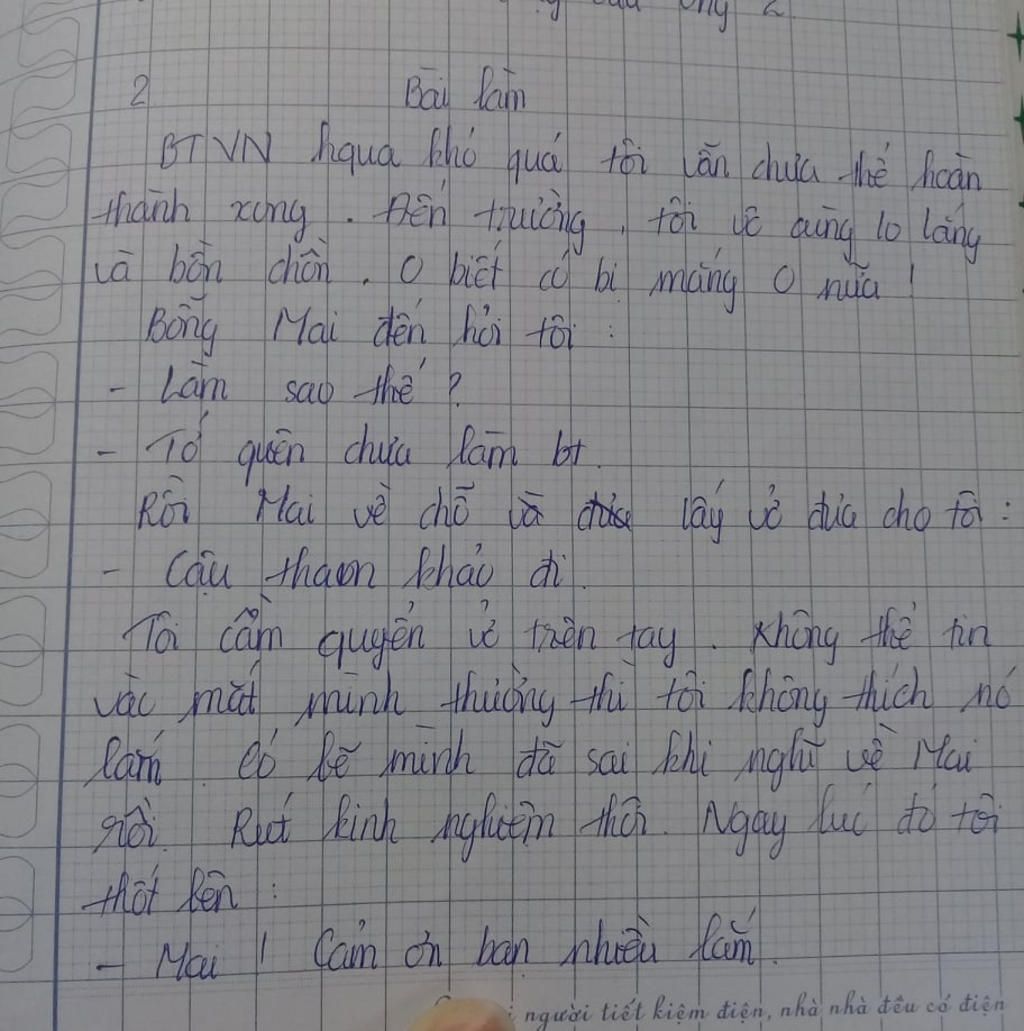 2 Bài làm
BTVN hqua khó quá tôi vẫn chưa thể hoàn
thành xong. Đến trường, tôi vô cùng lo lắng
và bồn chồn. O biết có bị mắng O nữa!
Bỗng Mai đến hỏi tôi:
- Làm sao thế?
- Tớ quên chưa làm bt.
Rồi Mai về chỗ và lấy vở đưa cho tôi:
- Cậu tham khảo đi.
Tôi cầm quyển vở trên tay. Không thể tin
vào mắt mình thường thì tôi không thích nó
lắm. Có lẽ mình đã sai khi nghĩ về Mai
rồi. Rút kinh nghiệm thôi. Ngay lúc đó tôi
thốt lên:
- Mai! Cảm ơn bạn nhiều lắm.
người tiết kiệm điện, nhà nhà đều có điện